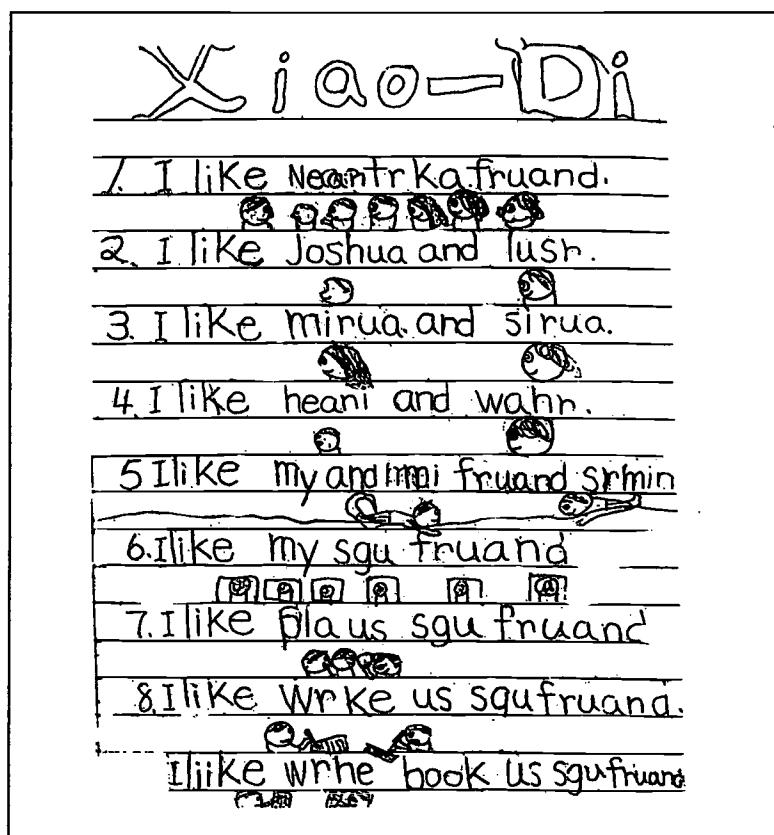 Xiao-Di
1. I like Neantrka fruand.
2. I like Joshua and lush.
3. I like mirua. and sirua.
4. I like heani and wahr.
5 I like my and mai fruand srmin
6. I like my sgu fruand
7. I like pla us sgu fruand
8. I like wrke us sgu fruand.
I like wrhe book us sgu fruand